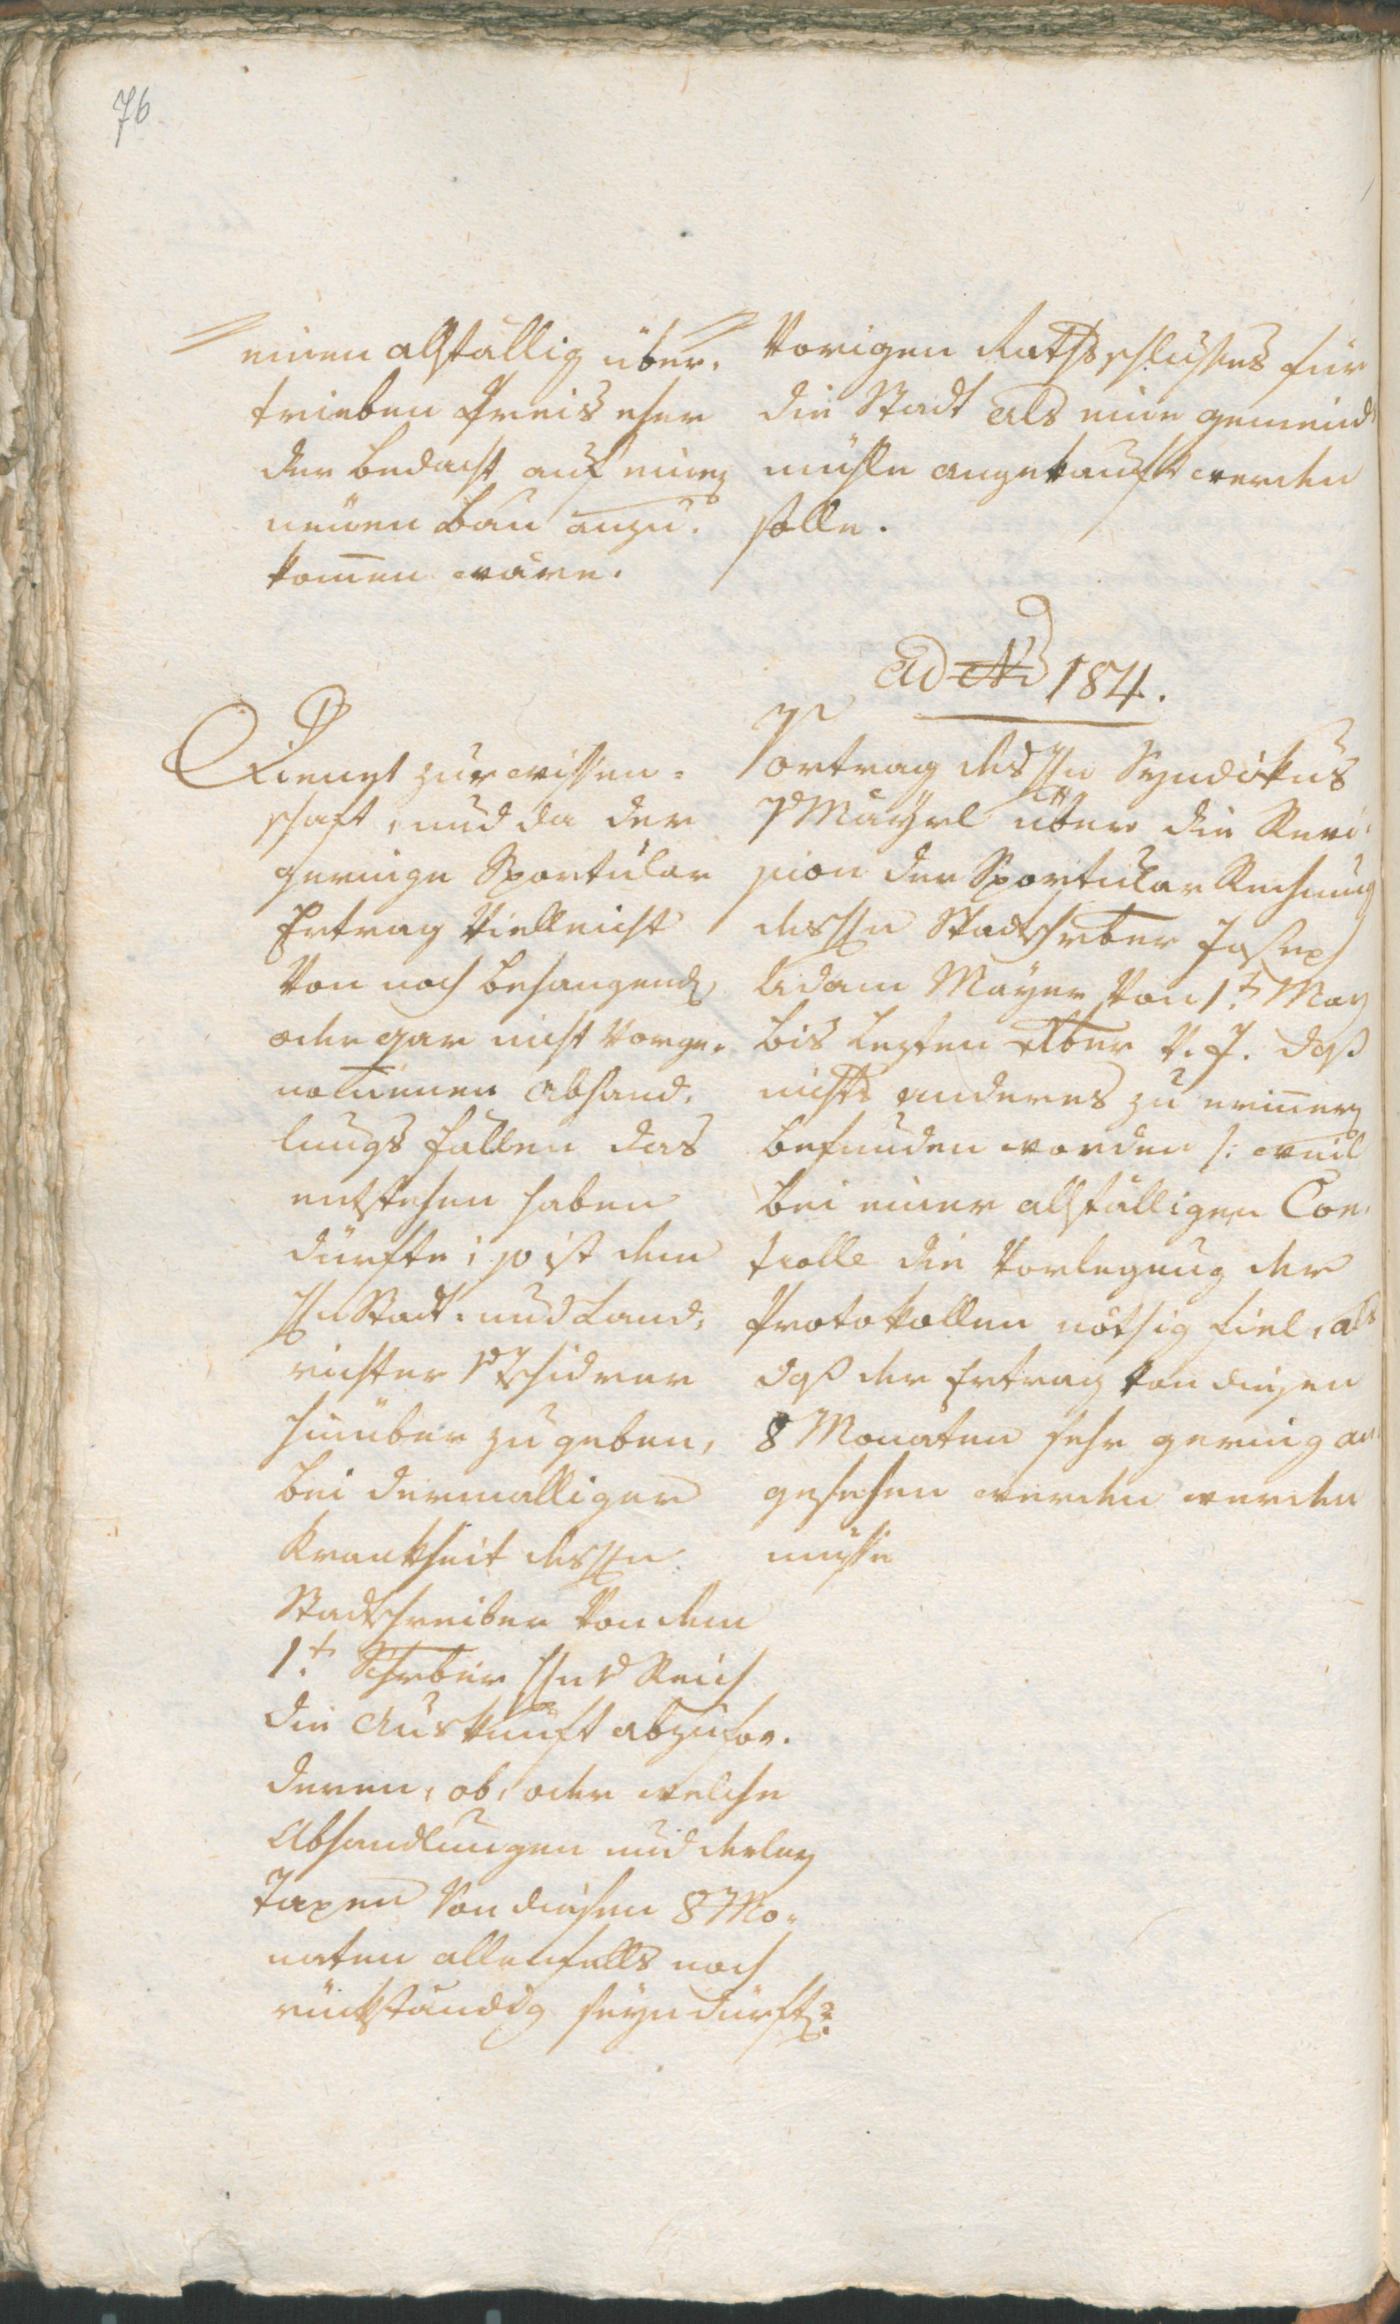 76
einen allfällig über„
trieben Preis eher
der Bedacht auf einen
neuen Bau anzu„
kom̄en wäre.
Vorigen Rathsschlußes für
die Stadt als eine gemeind„
mühle angekauft werden
solle.
ad No 184.
Dienet zur wissen„
schaft, und da der
geringe Sportular
Ertrag Vielleicht
Von noch behangenden
oder gar nicht Vorge„
nom̄enen Abhand„
lungs fällen das
entstehen haben
dürfte; so ist dem
Hn Stadt- und Land„
richter v Tschidrer
hinüber zu geben,
bei dermalliger
Krankheit des Hn
Stadtschreiber Von dem
1t Schrber Hn v Reich
die Auskunft abzufor„
deren, ob, oder welche
Abhandlungen und derley
Taxen Von diesen 8 Mo„
naten allenfalls noch
rückständig seyn dürften?
Vortrag des Hn Syndikus
v Mayrl über die Revi„
sion der Sportular Rechnung
des Hn Stadtschrber Joseph
Adam Mayer Von 1t May
bis lezten Xber v. J. daß
nichts anderes zu erin̄ern
befunden worden /: weil
bei einer allfälligen Con„
trolle die Vorlegung der
Protokollen nöthig fiel, als
daß der Ertrag Von diesen
8 Monaten sehr gering an„
gesehen werden werden
müsse